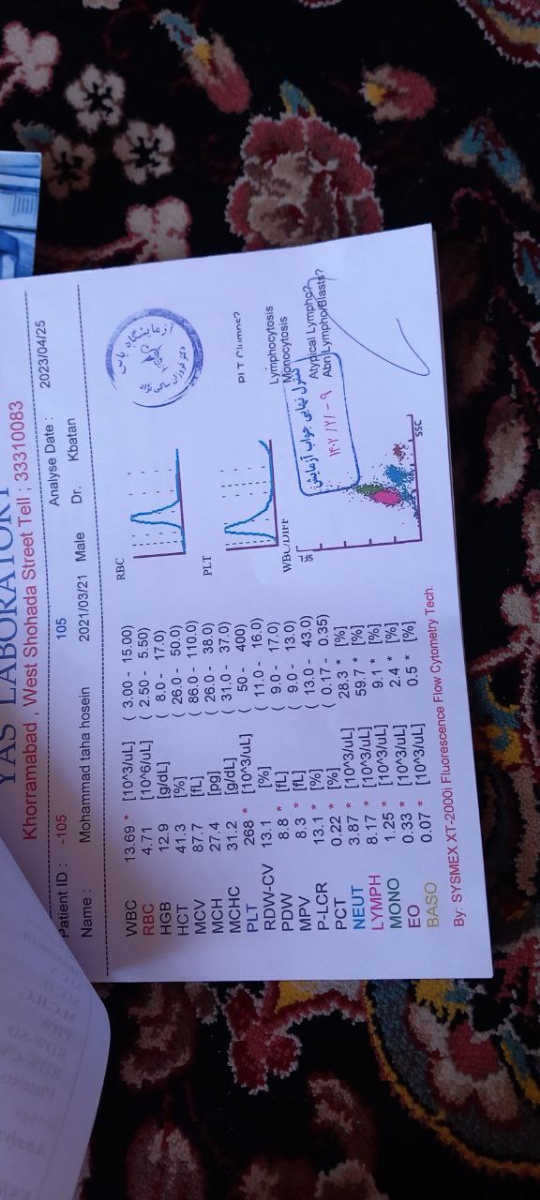 YAS LABORATORY
Khorramabad , West Shohada Street Tell : 33310083
Patient ID : -105 105 Analyse Date : 2023/04/25
Name : Mohammad taha hosein 2021/03/21 Male Dr. Kbatan
WBC 13.69 * [10^3/uL] ( 3.00 - 15.00)
RBC 4.71 [10^6/uL] ( 2.50 - 5.50)
HGB 12.9 [g/dL] ( 8.0 - 17.0)
HCT 41.3 [%] ( 26.0 - 50.0)
MCV 87.7 [fL] ( 86.0 - 110.0)
MCH 27.4 [pg] ( 26.0 - 38.0)
MCHC 31.2 [g/dL] ( 31.0 - 37.0)
PLT 268 * [10^3/uL] ( 50 - 400)
RDW-CV 13.1 [%] ( 11.0 - 16.0)
PDW 8.8 * [fL] ( 9.0 - 17.0)
MPV 8.3 * [fL] ( 9.0 - 13.0)
P-LCR 13.1 * [%] ( 13.0 - 43.0)
PCT 0.22 * [%] ( 0.17 - 0.35)
NEUT 3.87 * [10^3/uL] 28.3 * [%]
LYMPH 8.17 * [10^3/uL] 59.7 * [%]
MONO 1.25 * [10^3/uL] 9.1 * [%]
EO 0.33 * [10^3/uL] 2.4 * [%]
BASO 0.07 * [10^3/uL] 0.5 * [%]
By: SYSMEX XT-2000i Fluorescence Flow Cytometry Tech.
RBC
PLT
PLT Clumps?
WBC/DIFF
Lymphocytosis
Monocytosis
Atypical Lympho?
Abn Lympho/Blasts?
کنترل نهایی جواب آزمایش
۱۴۰۲/۲/-۹
SSC
آزمایشگاه یاس